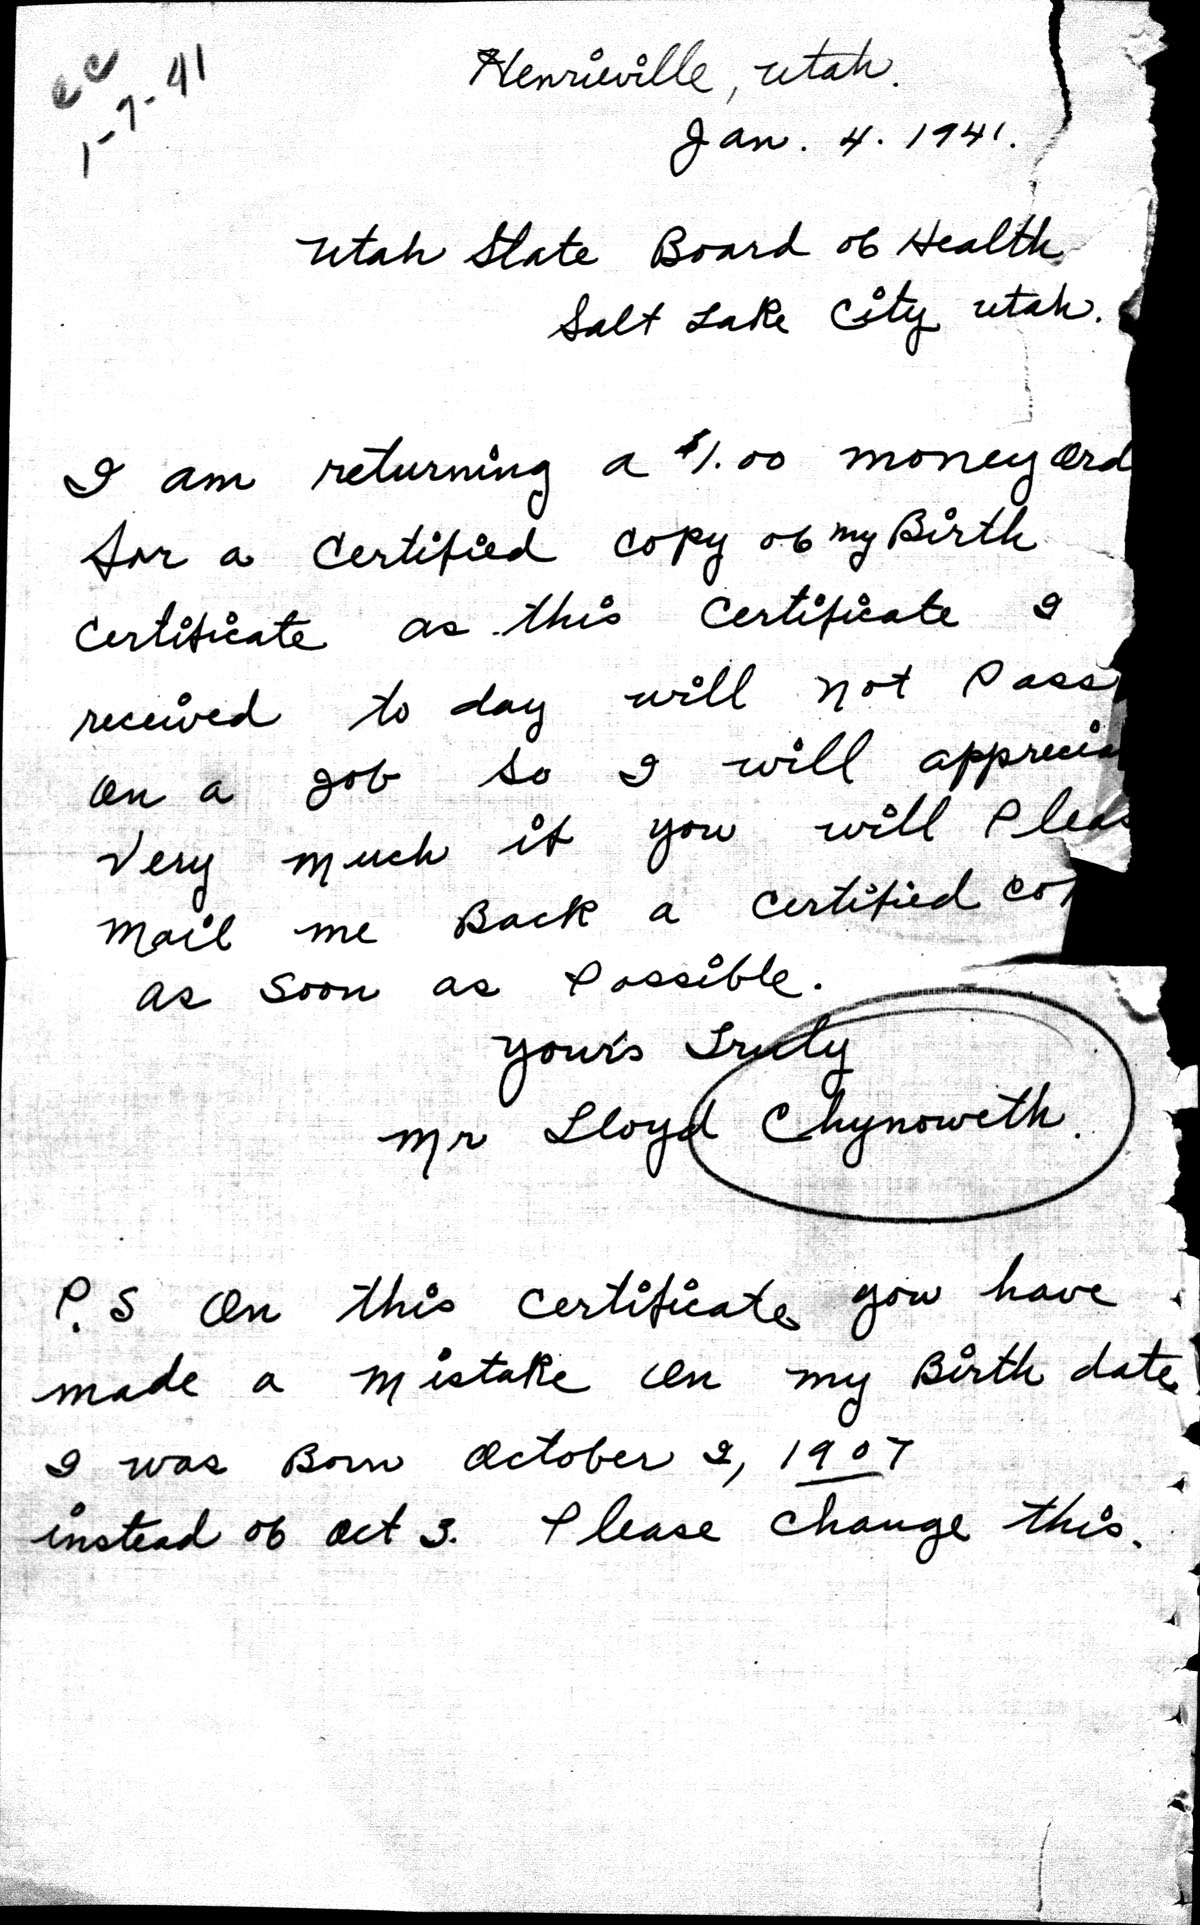 ec
1-7-41
Henrieville, Utah.
Jan. 4. 1941.
Utah State Board of Health
Salt Lake City Utah.
I am returning a $1.00 money Ord
for a Certified copy of my Birth
Certificate as this Certificate I
received to day will not Pass
On a Job So I will apprecia
Very much if you will Pleas
Mail me Back a Certified Cop
as Soon as Possible.
Your's Truly
Mr Lloyd Chynoweth.
P.S On this Certificate you have
made a Mistake On my Birth date
I was Born October 2, 1907
instead of Oct 3. Please Change this.